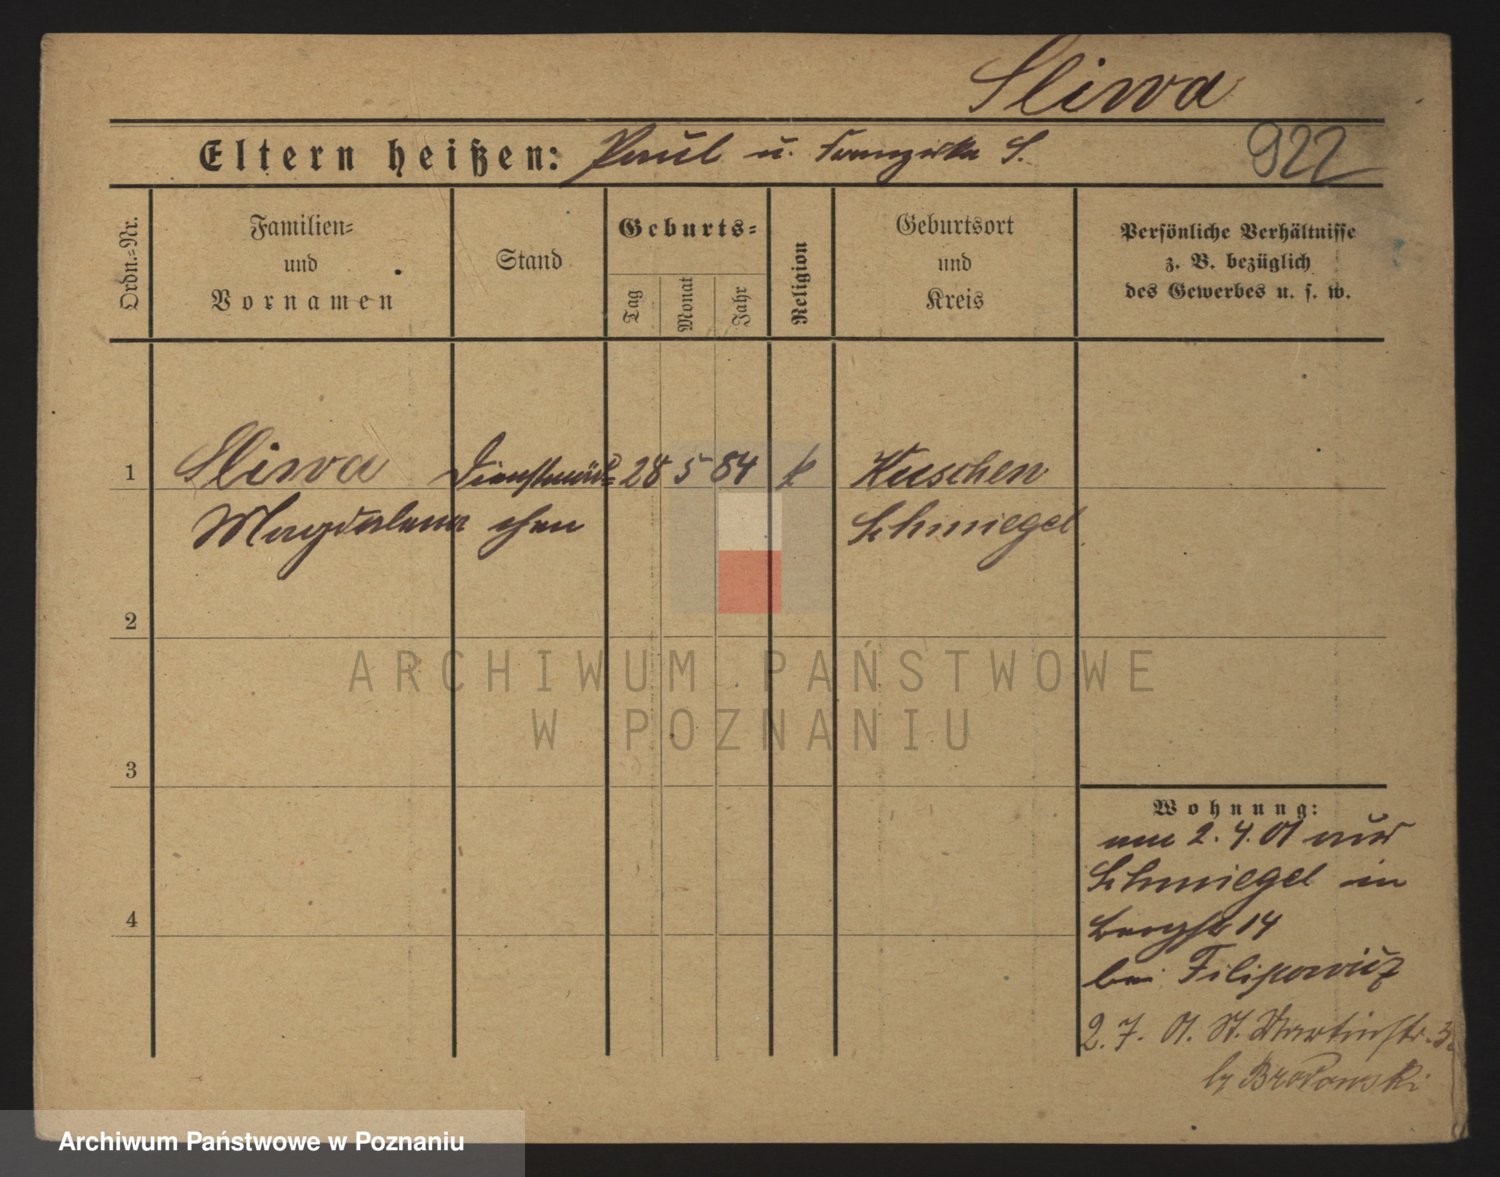 Sliwa
Eltern heißen: Paul u. Franziska S.
922
Ordn.=Nr.
Familien=
und
Vornamen
Stand
Geburts=
Tag
Monat
Jahr
Religion
Geburtsort
und
Kreis
Persönliche Verhältnisse
z. B. bezüglich
des Gewerbes u. s. w.
1 Sliwa Dienstmäd= 28 5 84 k Kuschen
Magdalena chen Schmiegel
2
3
4
ARCHIWUM PAŃSTWOWE
W POZNANIU
Wohnung:
am 2. 4. 01 aus
Schmiegel in
Bergstr 14
bei Filipowicz
2. 7. 01. St. Martinstr.
by Brodowski
Archiwum Państwowe w Poznaniu